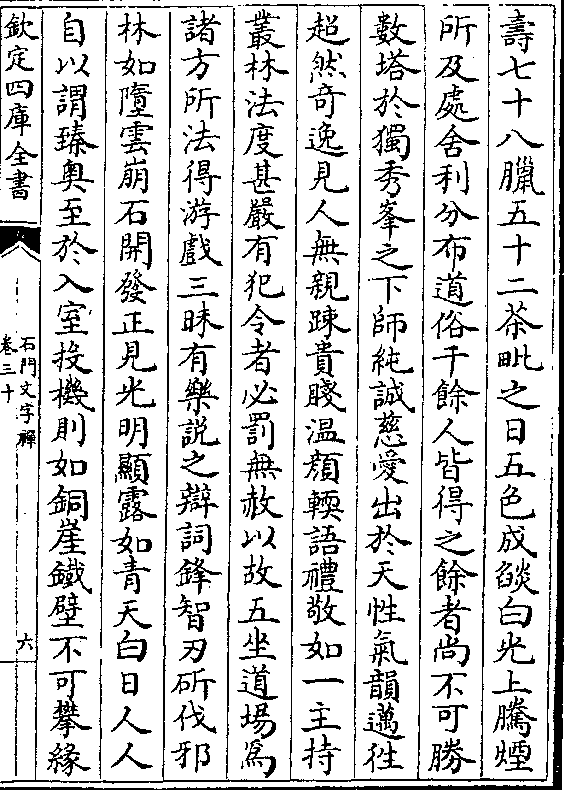 壽七十八臘五十二茶毗之日五色成燄白光上騰煙
所及處舍利分布道俗千餘人皆得之餘者尚不可勝
數塔於獨秀峯之下師純誠慈愛出於天性氣韻邁往
超然竒逸見人無親踈貴賤温顔輭語禮敬如一主持
叢林法度甚嚴有犯令者必罰無赦以故五坐道場為
諸方所法得游戲三昧有樂說之辯詞鋒智刃斫伐邪
林如墮雲崩石開發正見光明顯露如青天白日人人
自以謂臻奥至於入室投機則如銅崖鐵壁不可攀緣
欽定四庫全書
石門文字禪
卷三十
六